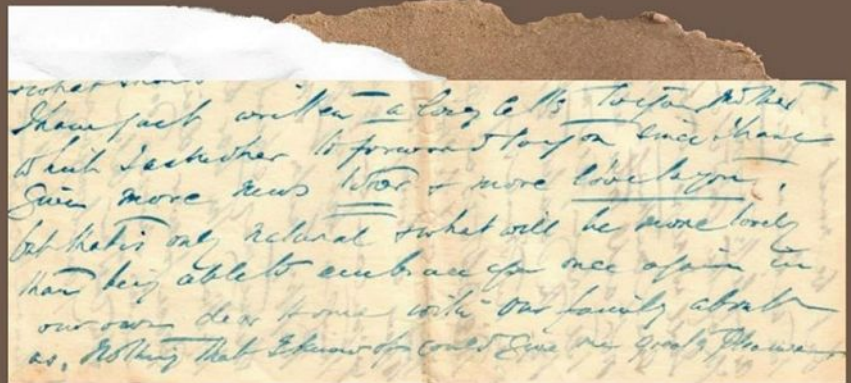 I have just written a long letter to your Mother
which I asked her to forward to you since I have
given more news to her & more love to you,
but that is only natural & what will be more lovely
than being able to embrace you once again in
our own dear home with our family about
us, Nothing that I know of could give me greater